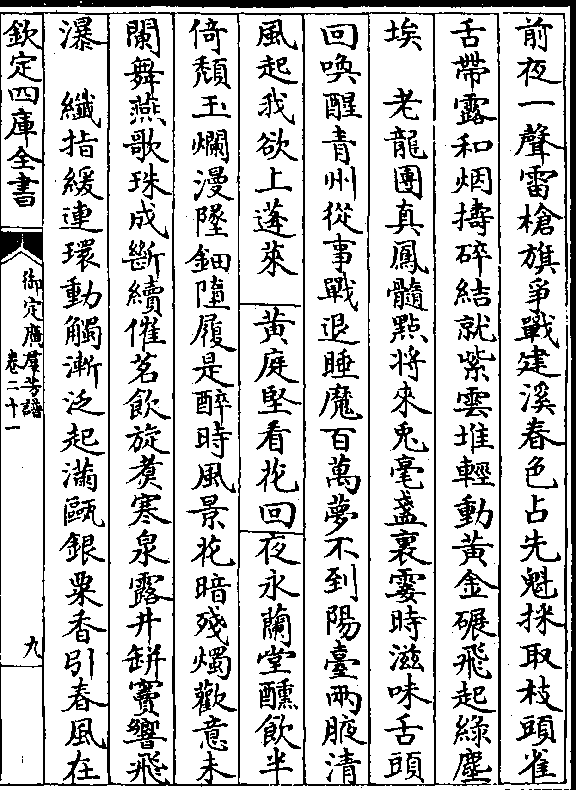 前夜一聲雷槍旗爭戰建溪春色占先魁採取枝頭雀
舌帶露和烟擣碎結就紫雲堆輕動黃金碾飛起綠塵
埃　老龍團真鳳髓點將來兎毫盞裏霎時滋味舌頭
回喚醒青州從事戰退睡魔百萬夢不到陽臺兩腋清
風起我欲上蓬萊　黃庭堅看花回夜永蘭堂醺飲半
倚頽玉爛漫墜鈿墮履是醉時風景花暗殘燭歡意未
闌舞燕歌珠成斷續催茗飲旋煑寒泉露井缾竇響飛
瀑　纖指緩連環動觸漸泛起滿甌銀粟香引春風在
欽定四庫全書
御定廣羣芳譜
卷二十一
九